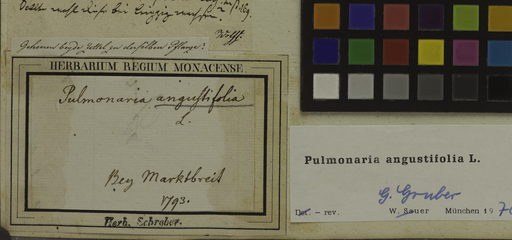 Gehören beyde Zettel zu derselben Pflanze?
HERBARIUM REGIUM MONACENSE.
Pulmonaria angustifolia
L.
Bey Marktbreit
1793.
Herb. Schreber.
Pulmonaria angustifolia L.
G. Gruber
Det. – rev. W. Sauer München 19 70